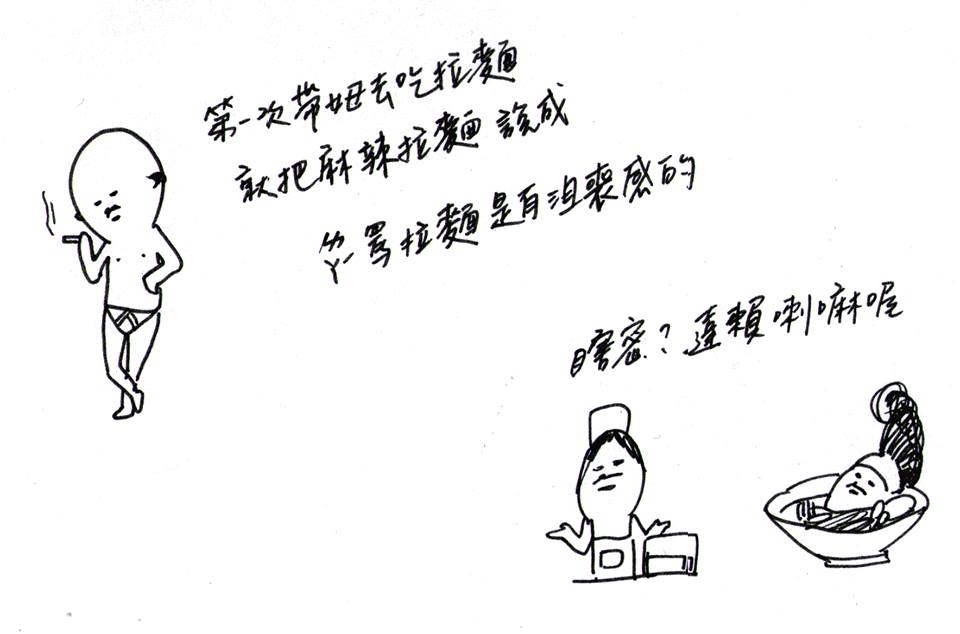 第一次帶姆去吃拉麵
就把麻辣拉麵說成
ㄌㄚ罵拉麵是有沮喪感的
瞎密？達賴喇嘛喔